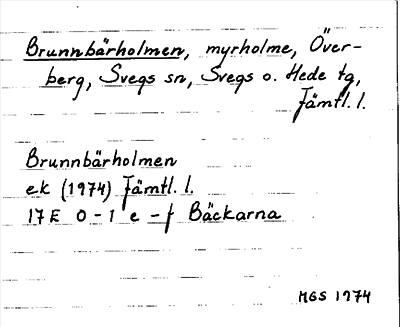 Brunnbärholmen, myrholme, Över-
berg, Svegs sn, Svegs o. Hede tg,
Jämtl. l.
Brunnbärholmen
ek (1974) Jämtl. l.
17E 0-1 e-f Bäckarna
MGS 1974